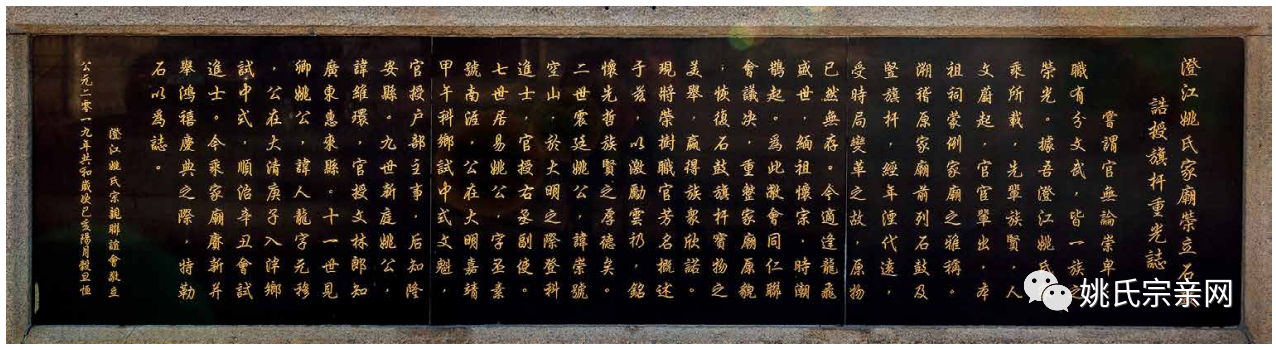 澄江姚氏家廟榮立石
誥授旗杆重光誌
嘗謂官無論崇卑
職有分文武，皆一族之
榮光。據吾澄江姚氏
乘所載，先輩族賢，人
文蔚起，官宦輩出，本
祖祠蒙例家廟之雅稱。
溯稽原家廟前列石鼓及
豎旗杆，經年湮代遠，
受時局變革之故，原物
已然無存。今適逢龍飛
盛世，緬祖懷宗，時潮
鵲起。為此敝會同仁聯
會議決，重整家廟原貌
，恢復石鼓旗杆寶物之
美舉，贏得族衆欣諾。
現將榮樹職官芳名概述
于茲，以激勵雲礽，銘
懷先哲族賢之厚德矣。
二世雲廷姚公，諱崇號
空山，於大明之際登科
進士，官授右丞副使。
七世居易姚公，字丕素
號南涯，公在大明嘉靖
甲午科鄉試中式文魁，
官授户部主事，后知隆
安縣。九世新庭姚公，
諱維環，官授文林郎知
廣東惠來縣。十一世見
卿姚公，諱人龍字元移
，公在大清庚子入泮鄉
試中式，順治辛丑會試
進士。今乘家廟賡新并
舉鴻禧慶典之際，特勒
石以為誌。
澄江姚氏宗親聯誼會敬立
公元二零一九年共和歲次己亥陽月穀旦恒
姚氏宗亲网